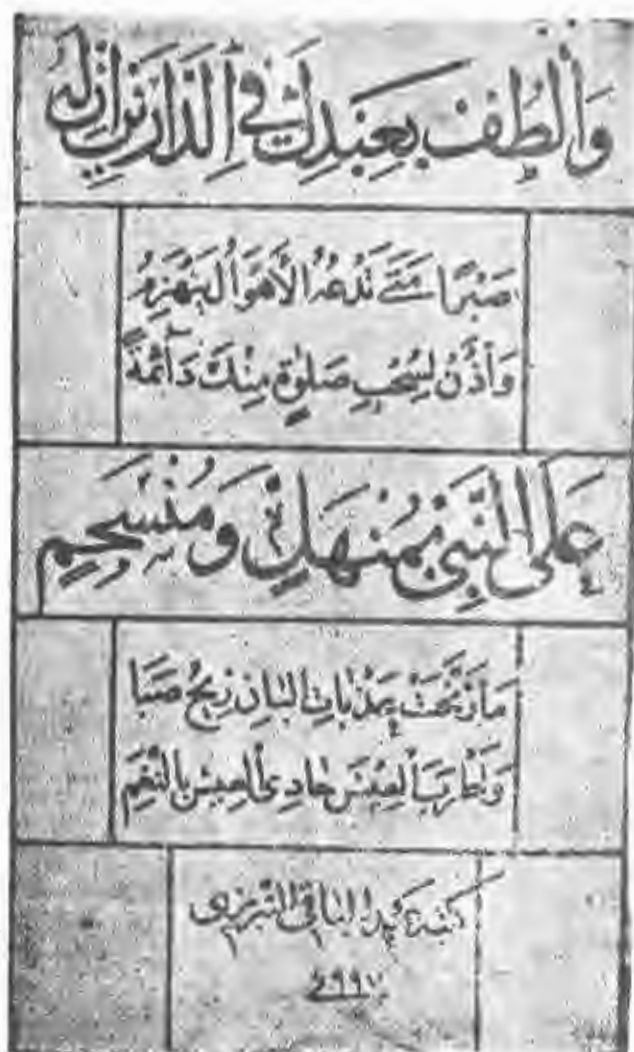 وَٱلْطُفْ بِعَبْدِكَ فِى ٱلدَّارَيْنِ اِنَّ لَهُ
صَبْرًا مَتَى تَدْعُهُ الْاَهْوَالُ يَنْهَزِمُ
وَأْذَنْ لِسُحْبِ صَلٰوةٍ مِنْكَ دَآئِمَةً
عَلَى النَّبِىِّ بِمُنْهَلٍّ وَمُنْسَجِمٍ
مَا رَنَّحَتْ عَذَبَاتِ الْبَانِ رِيحُ صَبَا
وَاَطْرَبَ الْعِيسَ حَادِى الْعِيسِ بِالنَّغَمِ
كتبه عبد الباقى التبريزى